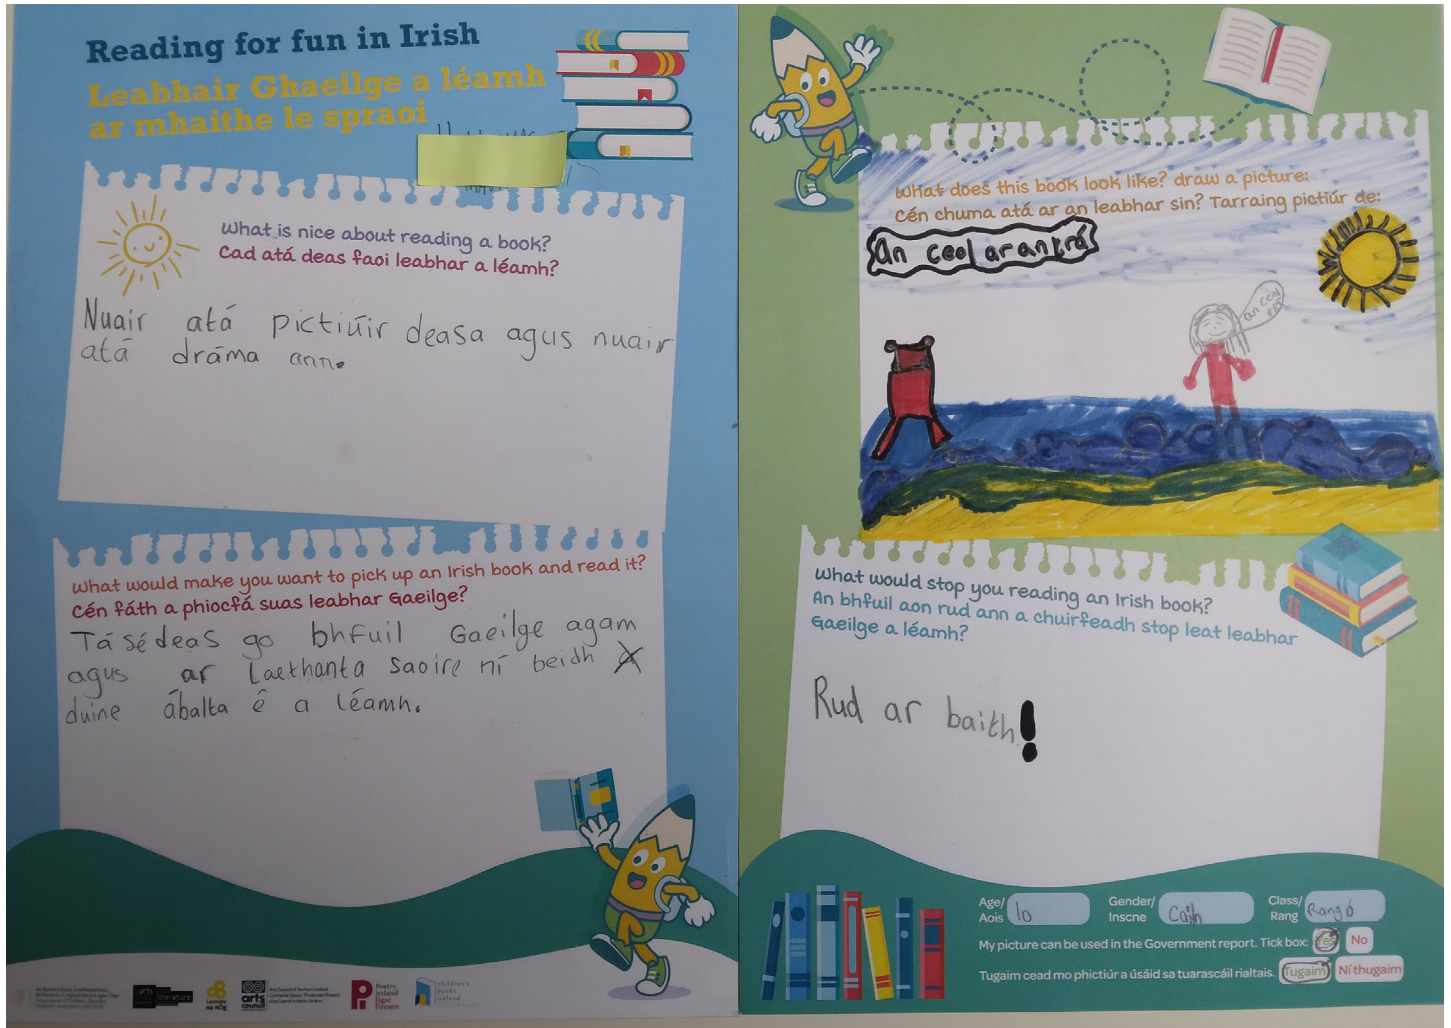 Reading for fun in Irish
Leabhair Ghaeilge a léamh
ar mhaithe le spraoi
What is nice about reading a book?
Cad atá deas faoi leabhar a léamh?
Nuair atá pictiúir deasa agus nuair
atá dráma ann.
What would make you want to pick up an Irish book and read it?
Cén fáth a phiocfá suas leabhar Gaeilge?
Tá sé deas go bhfuil Gaeilge agam
agus ar laethanta saoire ní beidh
duine ábalta é a léamh.
arts
literature
Laureate
na nÓg
arts
council
Poetry
Ireland
Éigse
Éireann
children's
books
ireland
What does this book look like? draw a picture:
Cén chuma atá ar an leabhar sin? Tarraing pictiúr de:
An ceol ar an trá
an ceol
What would stop you reading an Irish book?
An bhfuil aon rud ann a chuirfeadh stop leat leabhar
Gaeilge a léamh?
Rud ar baith!
Age/ Aois 10
Gender/ Inscne
Class/ Rang Rang 5
My picture can be used in the Government report. Tick box: Yes No
Tugaim cead mo phictiúr a úsáid sa tuarascáil rialtais. Tugaim Ní thugaim